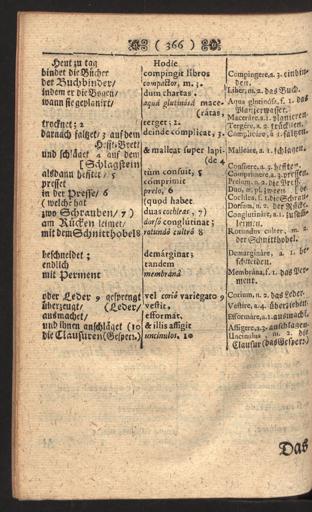 ( 366 )
Heut zu tag
bindet die Bücher
der Buchbinder/
indem er die Bogen/
wann sie geplanirt/
trocknet; 2
darnach falzet/ 3 auf dem
Hefft-Bret/
und schläget 4 auf dem
[Schlagstein
alsdann heftet/ 5
presset
in der Presse/ 6
( welche hat
zwo Schrauben/ 7 )
am Rücken leimet/
mit dem Schnitthobel 8
beschneidet;
endlich
mit Perment
oder Leder 9 gesprengt
überzeugt/ (Leder/
ausmachet/
und ihnen anschläget (10
die Clausuren (Gesperr.)
Hodie
compingit libros
compactor, m. 3.
dum chartas,
aquâ glutinosâ mace-
(ratas,
terget; 2.
deinde complicat, 3.
& malleat super lapi-
(de 4
tùm consuit, 5
comprimit
prelo, 6
(quod habet
duas cochleas, 7)
dorso conglutinat;
rotundo cultro 8
demarginat;
tandem
membranâ
vel corio variegato 9
vestit;
efformat,
& illis affigit
uncinulos. 10
Compingere, a. 3. einbin-
den.
Liber, m. 2. das Buch.
Aqua glutinosa, f. 1. das
Planierwasser.
Macerare, a. 1. planieren.
Tergere, a. 2. trücknen.
Complicare, a. 1. falzen.
Malleare, a. 1. schlagen.
Consuere, a. 3. hefften.
Comprimere, a. 3. pressen.
Prelum, n. 2. die Presse.
Duo, m. pl. zween
Cochlea, f. 1. die Schraube.
Dorsum, n. 2. der Rücke.
Conglutinare, a. 1.
leimen.
Rotundus culter, m. 2.
der Schnitthobel.
Demarginare, a. 1. be-
schneiden.
Membrana, f. 1. das Per-
ment.
Corium, n. 2. das Leder.
Vestire, a. 4. überziehen.
Efformare, a. 1. ausmachen.
Affigere, a. 3. anschlagen.
Uncinulus m. 2. die
Clausur (das Gesperr.)
Das